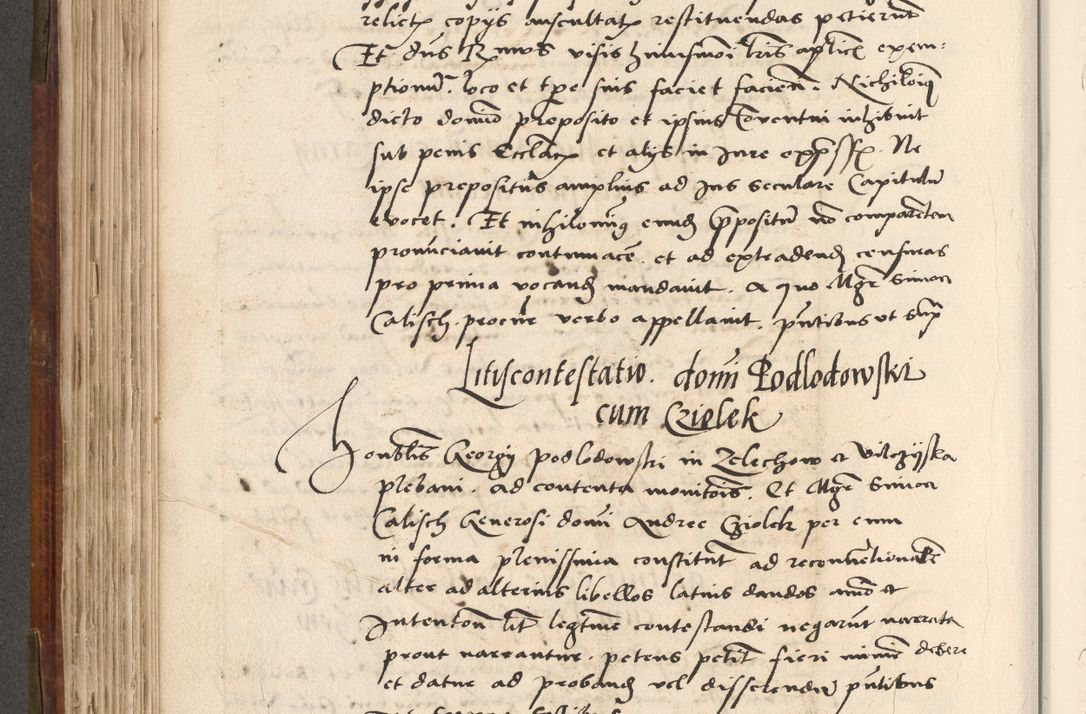 relictis copiis auscultatis restituendas petierunt
Et dns Rmus visis huiusmodi lris aplicis exem:
ptionum. loco et tpe suis faciet faciend. Nichilominq
dicto domino preposito et ipsius Conventui inhibuit
sub penis Ecclasticis et aliis in Jure expressis. Ne
ipse prepositus amplius ad Jus seculare Capitulum
evocet. Et nihilominq eund prepositum non comparentem
pronunciavit contumacem et ad extradend censuras
pro prima vocand mandavit. A quo Mgr Simon
Calisch. procur verbo appellavit. pntibus ut supra
Litiscontestatio. domi Podlodowski
cum Cziolek
Honblis Georgii Podlodowski in Zelechow et Vilczyska
plebani. ad contenta monitois. Et Mgr Simon
Calisch Generosi domi Andree Cziolek per eum
in forma plenissima constitut ad reconventionale
alter ad alterius libellos latius dandos animo et
Intention lit legitme contestandi negarunt narrata
prout narrantur. petens petit fieri minime debere
et datur ad proband vel disserendum pntibus